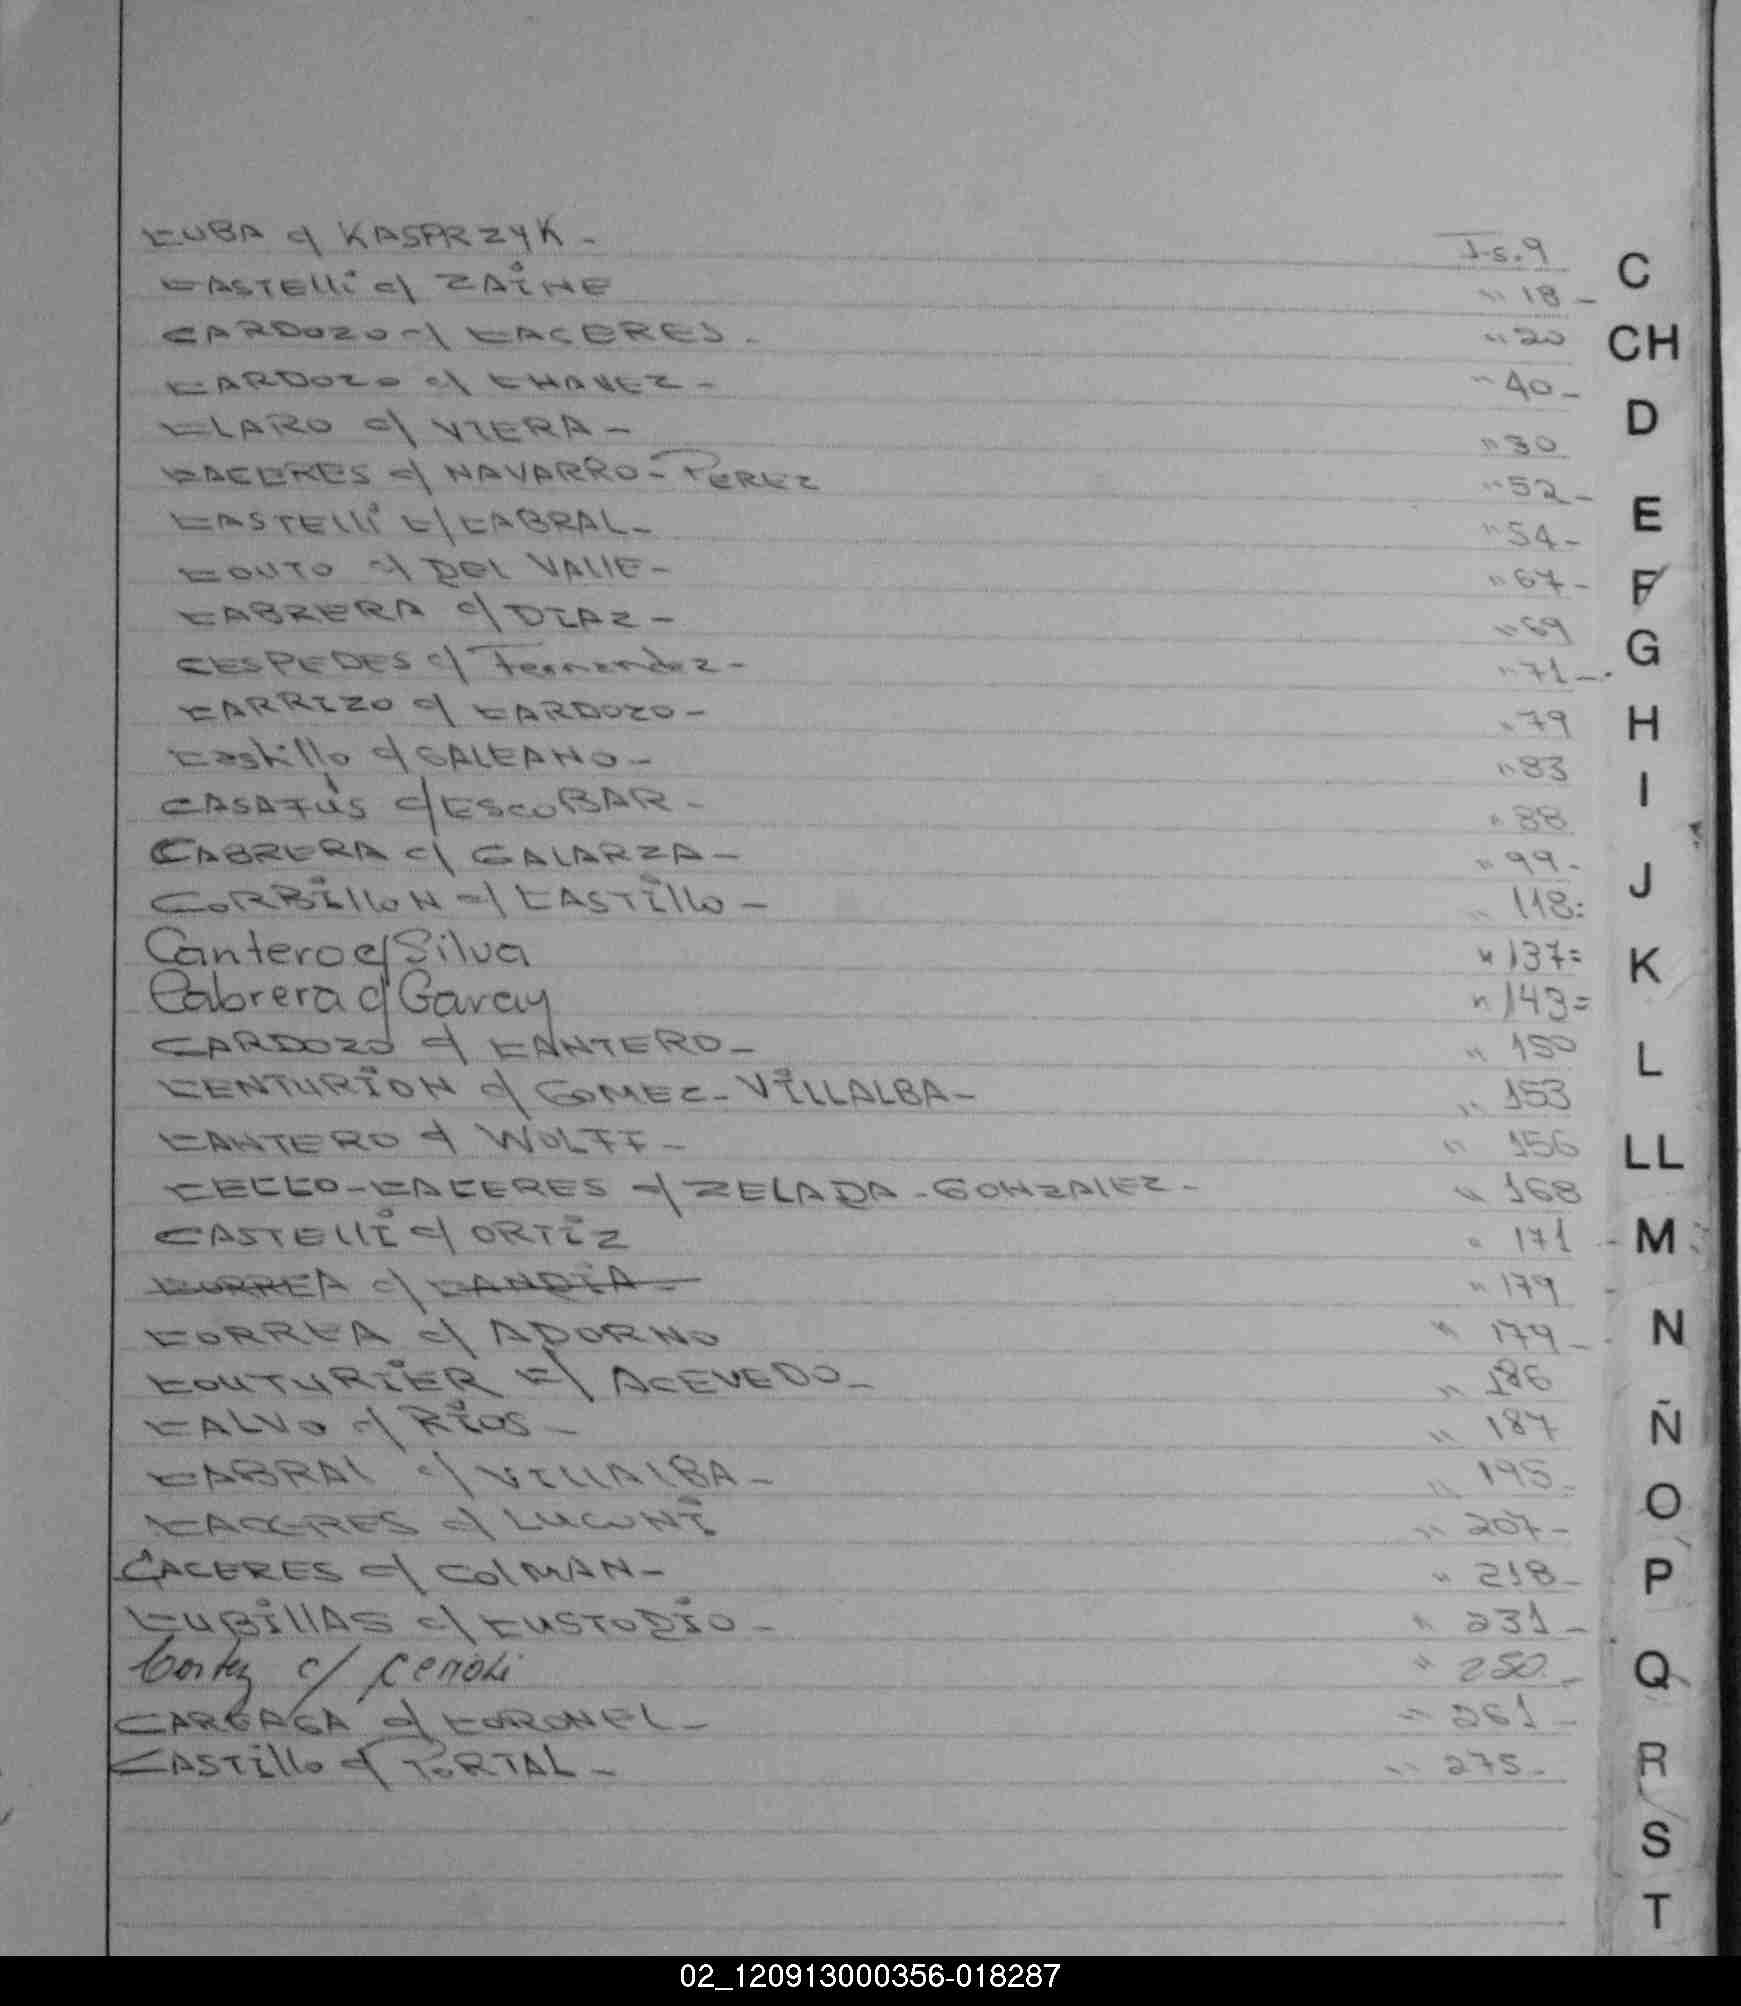 CUBA c/ KASPRZYK - Fs. 9
CASTELLi c/ ZAiNE " 18 -
CARDOZO c/ CACERES - " 20
CARDOZO c/ CHAVEZ - " 40 -
CLARO c/ VIERA - " 30
CACERES c/ NAVARRO - PEREZ " 52 -
CASTELLi c/ CABRAL - " 54 -
COUTO c/ DEL VALLE - " 67 -
CABRERA c/ DIAZ - " 69
CESPEDES c/ Fernandez - " 71 -
CARRIZO c/ CARDOZO - " 79
Castillo c/ GALEANO - " 83
CASAFÚS c/ ESCOBAR - " 88
CABRERA c/ GALARZA - " 99 -
CORBiLLON c/ CASTiLLO - " 118 =
Cantero c/ Silva " 137 =
Cabrera c/ Garay " 143 =
CARDOZO c/ CANTERO - " 150
CENTURiON c/ GOMEZ - ViLLALBA - " 153
CANTERO c/ WOLFF - " 156
CECCO - CACERES c/ ZELADA - GONZALEZ - " 168
CASTELLi c/ ORTiZ " 171
CORREA c/ CANDiA - " 179
CORREA c/ ADORNO " 179 -
COUTURiER c/ ACEVEDO - " 186
CALVO c/ RiOS - " 187
CABRAL c/ VILLALBA - " 195 -
CACERES c/ LUCONi " 207 -
CACERES c/ COLMAN - " 218 -
CUBiLLAS c/ CUSTODiO - " 231 -
c/ " 250 -
c/ CORONEL - " 261 -
CASTiLLO c/ PORTAL - " 275 -
C
CH
D
E
F
G
H
I
J
K
L
LL
M
N
Ñ
O
P
Q
R
S
T
02_120913000356-018287